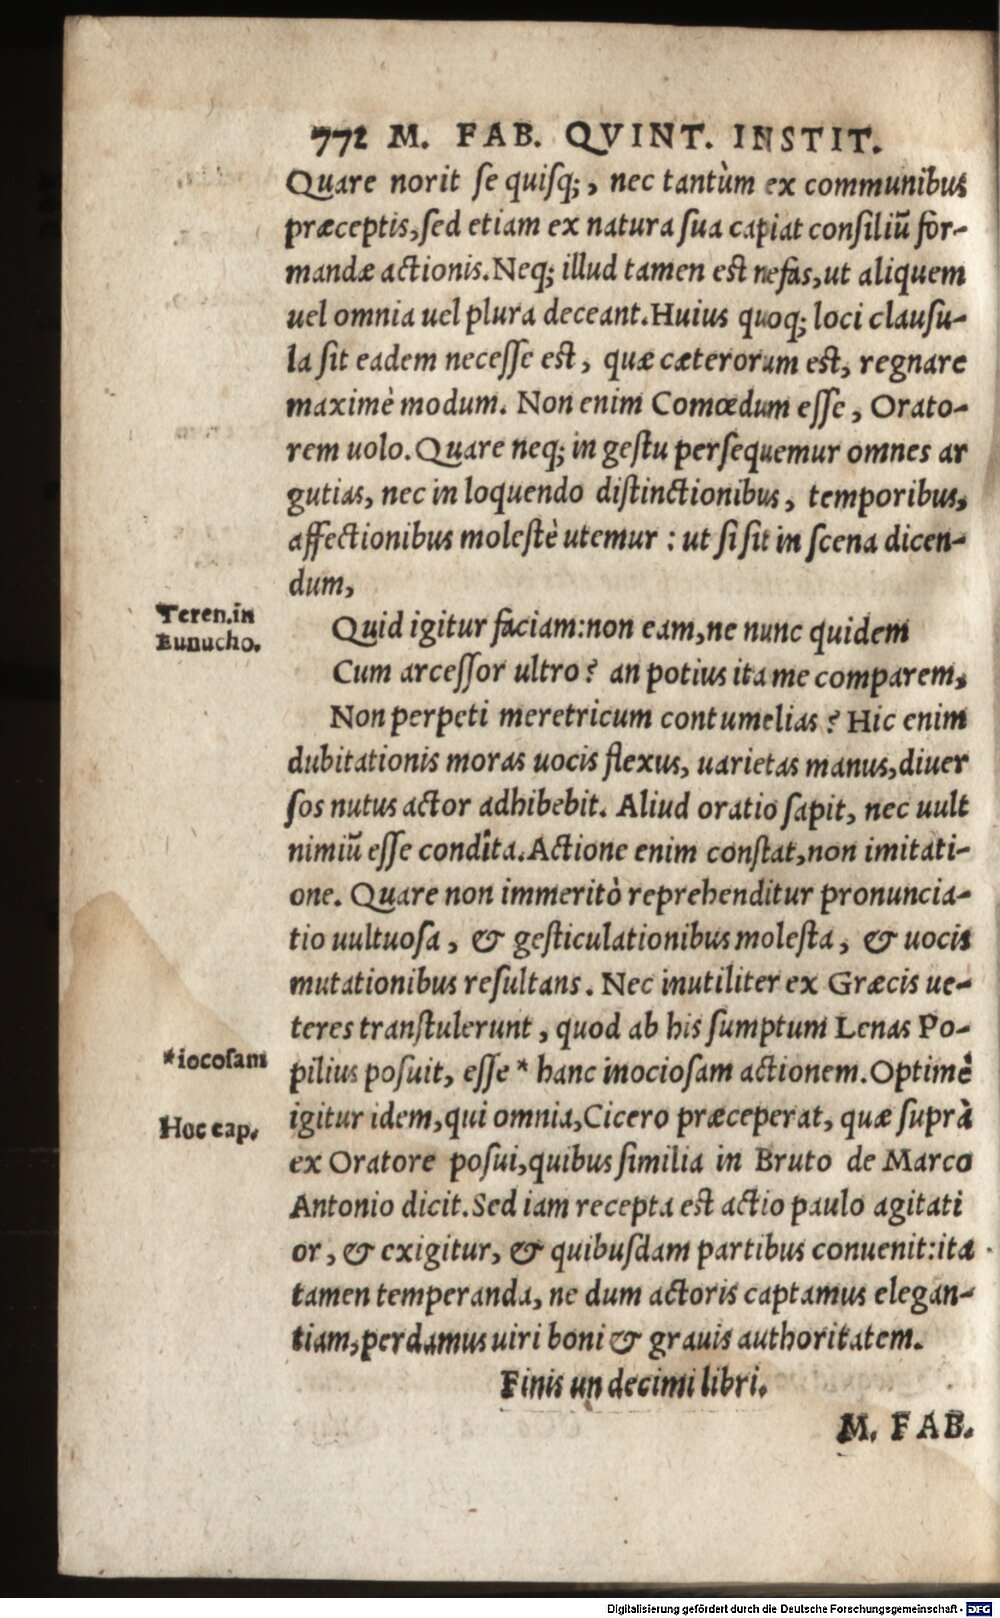 772 M. FAB. QVINT. INSTIT.
Quare norit se quisq;, nec tantùm ex communibus
præceptis, sed etiam ex natura sua capiat consiliũ for-
mandæ actionis. Neq; illud tamen est nefas, ut aliquem
uel omnia uel plura deceant. Huius quoq; loci clausu-
la sit eadem necesse est, quæ cæterorum est, regnare
maximè modum. Non enim Comœdum esse, Orato-
rem uolo. Quare neq; in gestu persequemur omnes ar
gutias, nec in loquendo distinctionibus, temporibus,
affectionibus molestè utemur: ut si sit in scena dicen-
dum,
Teren. in
Eunucho.
Quid igitur faciam: non eam, ne nunc quidem
Cum arcessor ultro? an potius ita me comparem,
Non perpeti meretricum contumelias? Hic enim
dubitationis moras uocis flexus, uarietas manus, diuer
sos nutus actor adhibebit. Aliud oratio sapit, nec uult
nimiũ esse condita. Actione enim constat, non imitati-
one. Quare non immeritò reprehenditur pronuncia-
tio uultuosa, & gesticulationibus molesta, & uocis
mutationibus resultans. Nec inutiliter ex Græcis ue-
teres transtulerunt, quod ab his sumptum Lenas Po-
*iocosam
pilius posuit, esse * hanc inociosam actionem. Optimè
Hoc cap.
igitur idem, qui omnia, Cicero præceperat, quæ suprà
ex Oratore posui, quibus similia in Bruto de Marco
Antonio dicit. Sed iam recepta est actio paulo agitati
or, & exigitur, & quibusdam partibus conuenit: ita
tamen temperanda, ne dum actoris captamus elegan-
tiam, perdamus uiri boni & grauis authoritatem.
Finis undecimi libri.
M. FAB.
Digitalisierung gefördert durch die Deutsche Forschungsgemeinschaft - DFG